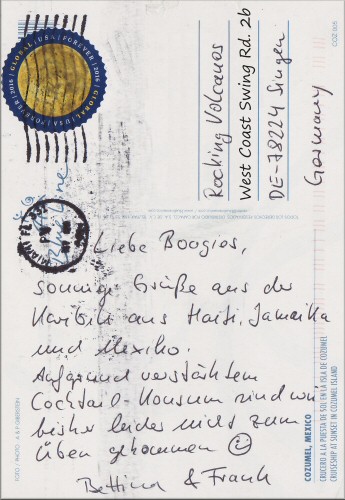 GLOBAL | USA | FOREVER | 2016 | GLOBAL | USA | FOREVER | 2016
MIAMI FL
PM
COZ 005
Rocking Volcanos
West Coast Swing Rd. 2b
DE-78224 Singen
Germany
Liebe Boogies,
sonnige Grüße aus der
Karibik aus Haiti, Jamaika
und Mexiko.
Aufgrund verstärktem
Cocktail-Konsum sind wir
bisher leider nicht zum
Üben gekommen ☺
Bettina & Frank
COZUMEL, MEXICO
CRUCERO A LA PUESTA DE SOL EN LA ISLA DE COZUMEL
CRUISESHIP AT SUNSET IN COZUMEL ISLAND
FOTO / PHOTO: